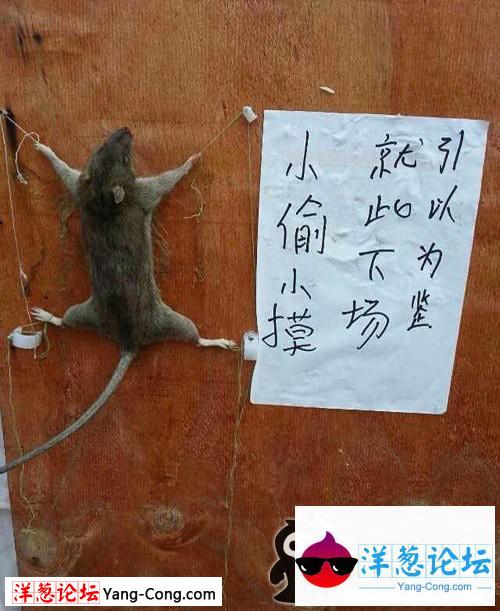 小偷小摸
就此下场
引以为鉴
洋葱论坛 Yang-Cong.com
洋葱论坛
Yang-Cong.com